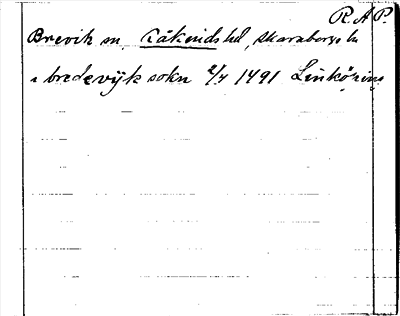 R.A.P.
Brevik sn, Kåkinds hd, Skaraborgs ln
i bredevijk sokn 2/7 1491 Linköping